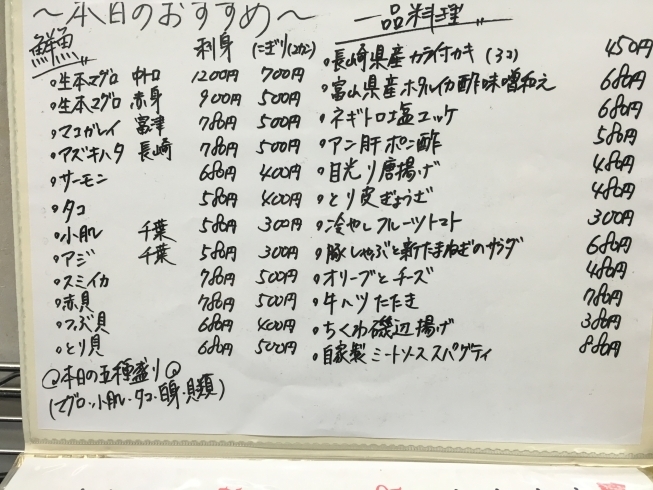 ～本日のおすすめ～
鮮魚 刺身 にぎり(2カン)
。生本マグロ 中トロ 1200円 700円
。生本マグロ 赤身 900円 500円
。マコガレイ 富津 780円 500円
。アズキハタ 長崎 780円 500円
。サーモン 680円 400円
。タコ 580円 400円
。小肌 千葉 580円 300円
。アジ 千葉 580円 300円
。スミイカ 780円 500円
。赤貝 780円 500円
。つぶ貝 680円 400円
。とり貝 680円 500円
本日の五種盛り
(マグロ・小肌・タコ・白身・貝類)
一品料理
。長崎県産 カラ付カキ (3コ) 450円
。富山県産ホタルイカ酢味噌和え 680円
。ネギトロ塩ユッケ 680円
。アン肝ポン酢 580円
。目光り唐揚げ 480円
。とり皮ぎょうざ 480円
。冷やしフルーツトマト 300円
。豚しゃぶと新たまねぎのサラダ 680円
。オリーブとチーズ 480円
。牛ハツたたき 780円
。ちくわ磯辺揚げ 380円
。自家製ミートソーススパゲティ 880円